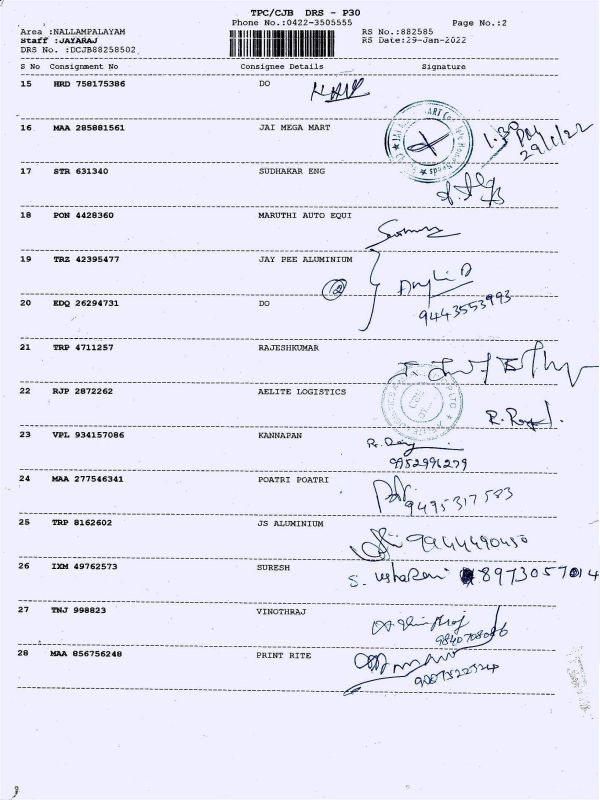 TPC/CJB DRS - P30
Phone No.:0422-3505555 Page No.:2
Area :NALLAMPALAYAM RS No.:882585
Staff :JAYARAJ RS Date:29-Jan-2022
DRS No. :DCJB88258502
S No Consignment No Consignee Details Signature
15 HRD 758175386 DO
16 MAA 285881561 JAI MEGA MART
1.30 PM
29/1/22
17 STR 631340 SUDHAKAR ENG
18 PON 4428360 MARUTHI AUTO EQUI
19 TRZ 42395477 JAY PEE ALUMINIUM
(2)
9443553993
20 EDQ 26294731 DO
21 TRP 4711257 RAJESHKUMAR
22 RJP 2872262 AELITE LOGISTICS
23 VPL 934157086 KANNAPAN
9952996279
24 MAA 277546341 POATRI POATRI
9495317583
25 TRP 8162602 JS ALUMINIUM
9944490450
26 IXM 49762573 SURESH
S. Usharani 8973057014
27 TNJ 998823 VINOTHRAJ
28 MAA 856756248 PRINT RITE